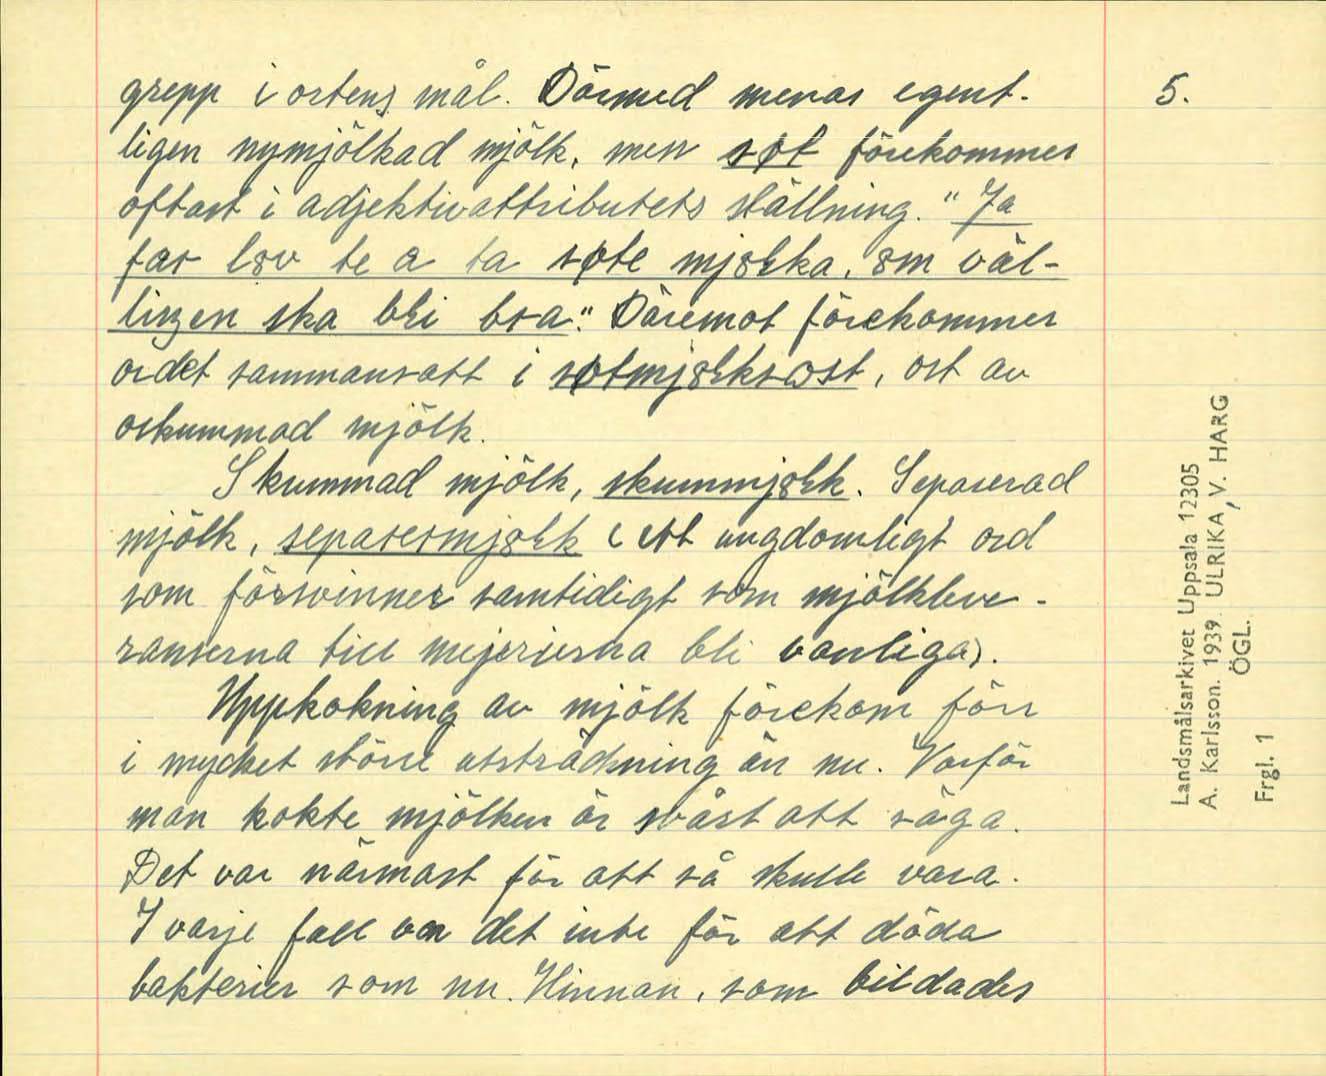 grepp i ortens mål. Därmed menas egent-
ligen nymjölkad mjölk, men søt förekommer
oftast i adjektivattributets ställning. "Ja
far lov te a ta søte mjölka, om väl-
lingen ska bli bra". Däremot förekommer
ordet sammansatt i søtmjölksost, ost av
oskummad mjölk.
Skummad mjölk, skummjölk. Separerad
mjölk, separermjölk (ett ungdomligt ord
som försvinner samtidigt som mjölkleve-
ranserna till mejerierna bli vanliga).
Uppkokning av mjölk förekom förr
i mycket större utsträckning än nu. Varför
man kokte mjölken är svårt att säga.
Det var närmast för att så skulle vara.
I varje fall var det inte för att döda
bakterier som nu. Hinnan, som bildades
5.
Landsmålsarkivet Uppsala 12305
A. Karlsson. 1939. ULRIKA, V. HARG
ÖGL.
Frgl. 1